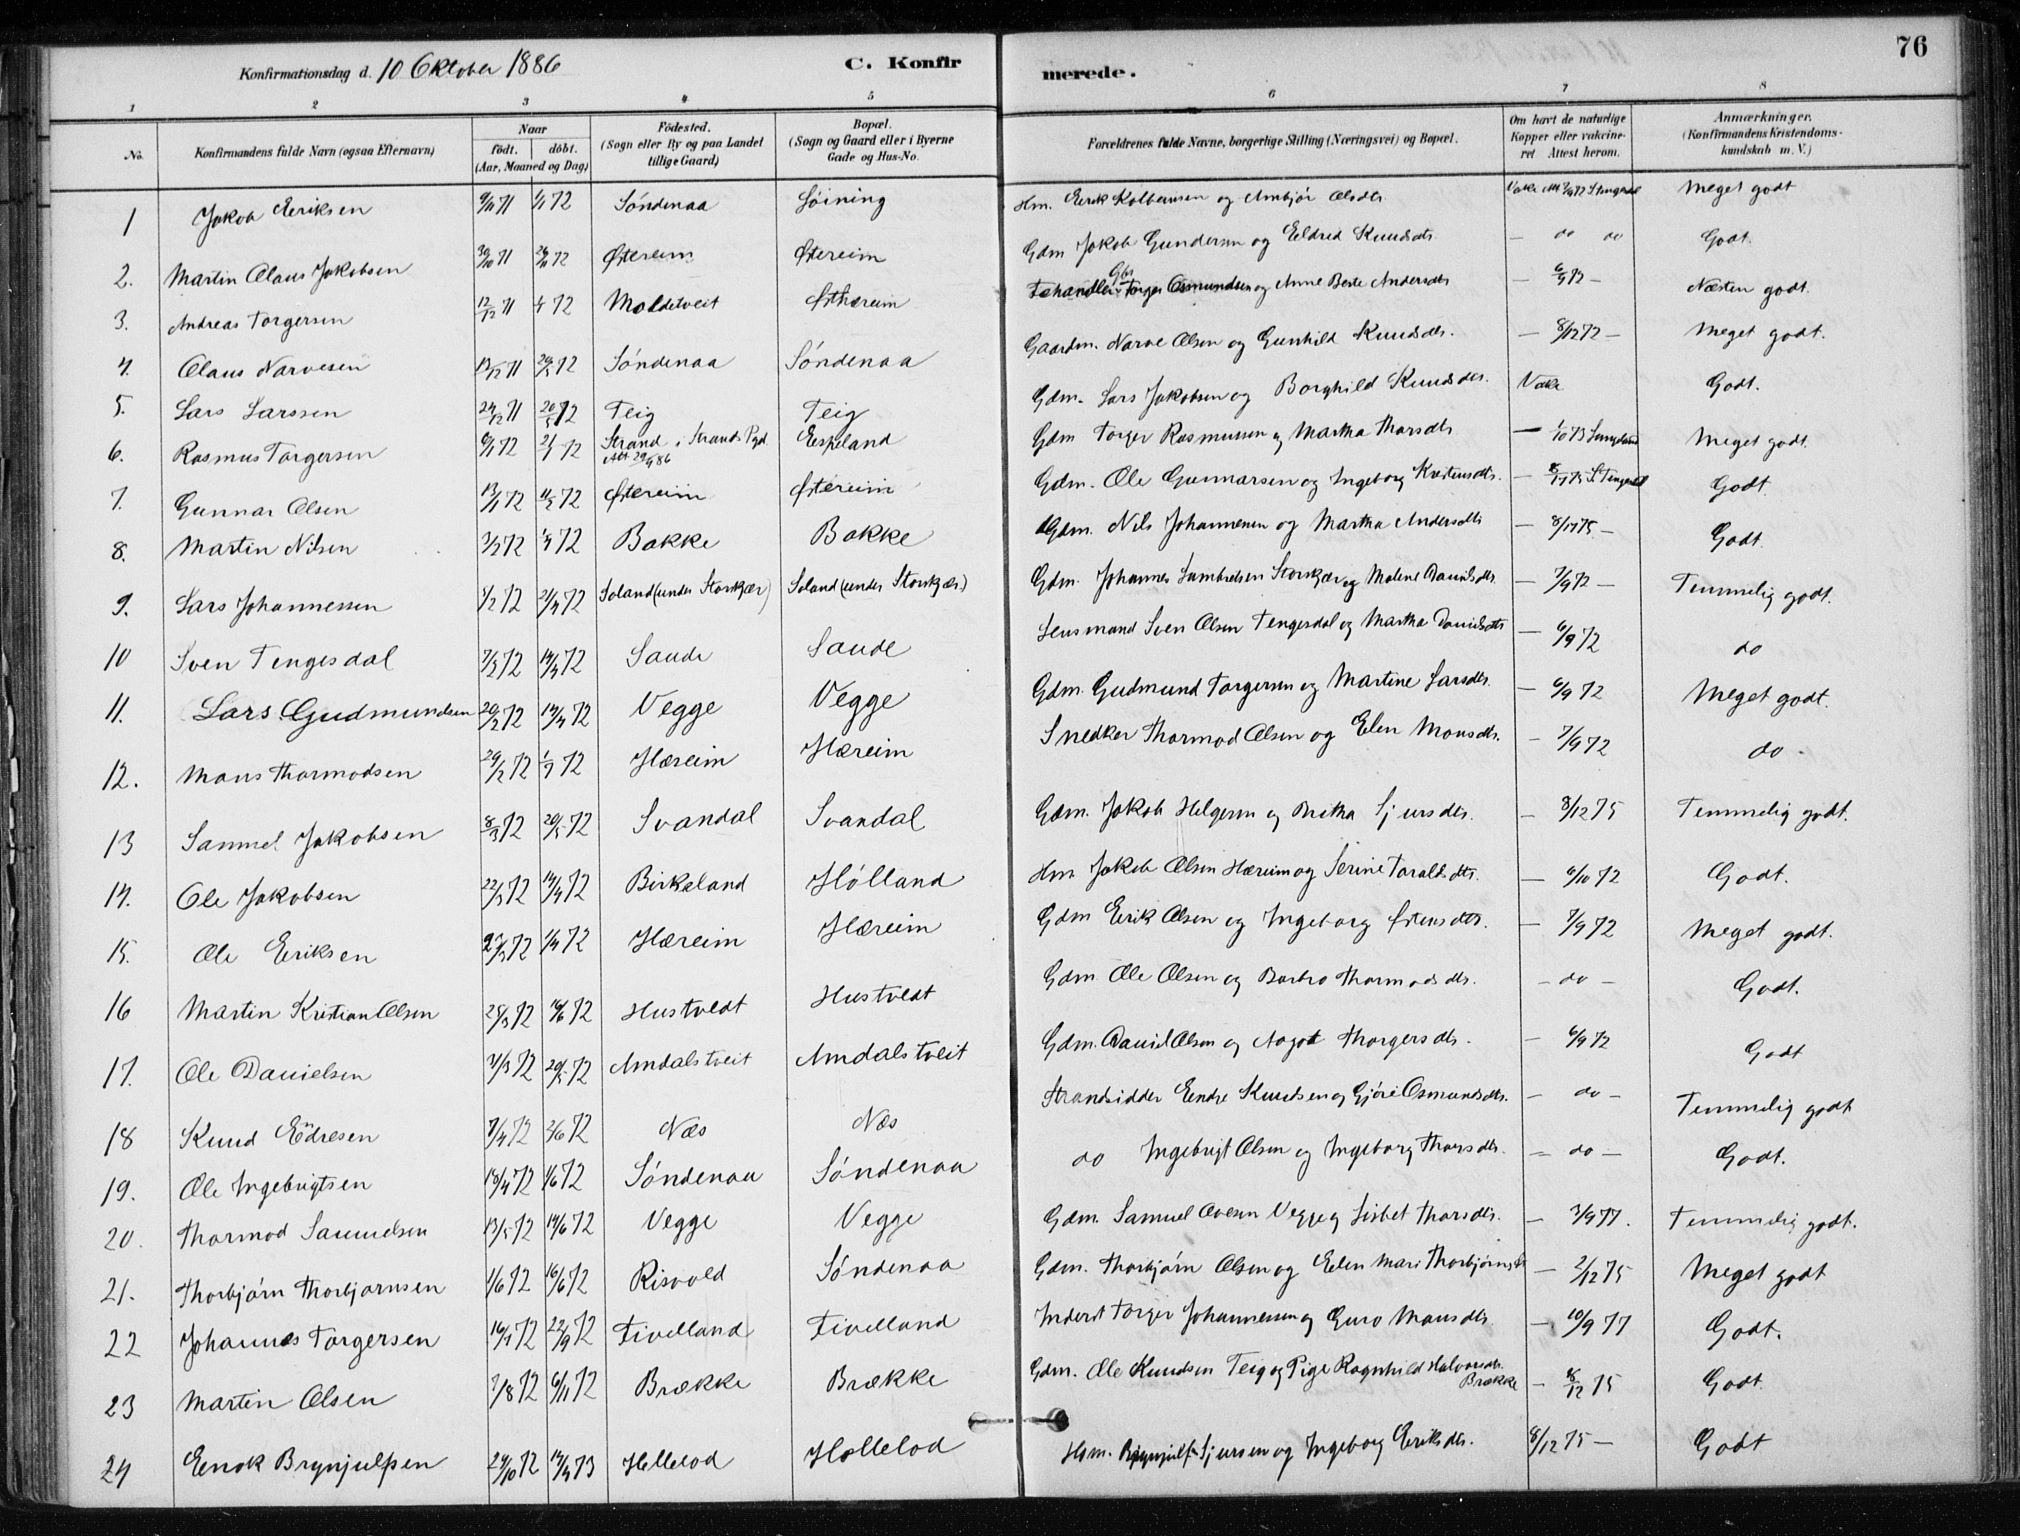 76
Konfirmationsdag d. 10 Oktober 1886 C. Konfirmerede.
1 2 3 4 5 6 7 8
No. Konfirmandens fulde Navn (ogsaa Efternavn) Naar født. døbt. (Aar, Maaned og Dag) Fødested. (Sogn eller By og paa Landet tillige Gaard) Bopæl. (Sogn og Gaard eller i Byerne Gade og Hus-No. Forældrenes fulde Navne, borgerlige Stilling (Næringsvei) og Bopæl. Om havt de naturlige Kopper eller vakcineret Attest herom. Anmærkninger. (Konfirmandens Kristendomskundskab m. V.)
1 Jakob Eeriksen 9/11 71 1/1 72 Søndenaa Løining Hm. Eerik Kolbeinsen og Anbjør Olsdtr. Meget godt
2. Martin Olaus Jakobsen 30/10 71 72 Østereim Østereim Gdm Jakob Gundersen og Eldrid Knudsdtr. — do do Godt.
3. Andreas Torgersen 12/12 71 72 Moldetveit Østhereim Torger Osmundsen og Anne Berte Andersdtr — 6/9 72 — Næsten godt.
4. Olaus Narvesen 71 72 Søndenaa Søndenaa Gaardm. Narve Olsen og Gunhild Knudsdtr. — 8/12 72 — Meget godt.
5. Lars Larssen 24/12 71 20/5 72 Teig Teig Gdm. Lars Jakobsen og Borghild Knudsdtr. Vakc Godt.
6. Rasmus Torgersen 6/1 72 72 Strand i Strands Pgd. Att. 29/9 86 Eskeland Gdm Torger Rasmussen og Martha Thorsdtr — 1/10 73 Meget godt.
7. Gunnar Olsen 13/1 72 72 Østereim Østereim Gdm. Ole Gunnarsen og Ingeborg — 8/11 75 S. Tengesdal Godt.
8. Martin Nilsen 72 72 Bakke Bakke Gdm. Nils Johannesen og Martha Andersdtr — 8/11 75 — Godt.
9. Lars Johannessen 1/2 72 21/4 72 Soland (under Storskjær) Soland (under Storskjær) Gdm. Johannes Lambretsen Storskjær og Malene Danielsdtr. — 7/9 72 — Temmelig godt.
10 Sven Tengesdal 7/2 72 14/4 72 Saude Saude Lensmand Sven Olsen Tengesdal og Martha Danielsdtr — 6/9 72 do
11. Lars Gudmundsen 20/2 72 14/4 72 Vegge Vegge Gdm. Gudmund Torgersen og Martine Larsdtr. — 6/9 72 Meget godt.
12. Mons Thormodsen 29/2 72 72 Hæreim Hæreim Snedker Thormod Olsen og Elen Monsdtr. — 7/9 72 do -
13 Samuel Jakobsen 8/3 72 20/5 72 Svandal Svandal Gdm. Jakob Helgesen og Britha Sjursdtr. — 8/12 75 Temmelig godt.
14. Ole Jakobsen 22/3 72 14/4 72 Birkeland Hølland Hm Jakob Olsen Hæreim og Serine Toraldsdtr. — 6/10 72 Godt.
15. Ole Eeriksen 72 1/4 72 Hæreim Hæreim Gdm Eerik Olsen og Ingeborg Østensdtr. — 7/9 72 Meget godt.
16 Martin Kristian Olsen 25/3 72 16/6 72 Hustvedt Hustvedt Gdm. Ole Olsen og Barbro Thormodsdtr. — do — Godt.
17. Ole Danielsen 31/3 72 20/5 72 Amdalstveit Amdalstveit Gdm. Daniel Olsen og Aagot Thorgersdtr. — 6/9 72 Godt
18 Knud Eendresen 7/4 72 2/6 72 Næs Næs Strandsidder Eendre Knudsen og Gjøri Osmundsdtr. — do — Temmelig godt
19. Ole Ingebrigtsen 18/4 72 1/6 72 Søndenaa Søndenaa do Ingebrigt Olsen og Ingeborg Thorsdtr. — do — Godt.
20. Thormod Samuelsen 13/5 72 14/6 72 Vegge Vegge Gdm. Samuel Ovesen Vegge og Lisbet Thorsdtr. — 3/9 77. Temmelig godt.
21. Thorbjørn Thorbjørnsen 1/6 72 16/6 72 Risvold Søndenaa Gdm. Thorbjørn Olsen og Eelen Mari Thorbjørnsdtr — 2/12 75 Meget godt
22 Johannes Torgersen 16/7 72 22/9 72 Tivelland Tivelland Inderst Torger Johannessen og Guro Monsdtr. — 10/9 77 Godt.
23 Martin Olsen 7/8 72 6/11 72 Brække Brække Gdm. Ole Knudsen Teig og Pige Ragnhild Halvorsdtr. Brække — 8/12 75 Godt.
24 Eenok Brynjulfsen 24/10 72 14/4 73 Hellelod Hellelod Hsm. Brynjulf Sjursen og Ingeborg Eeriksdtr. 8/12 75 — Godt